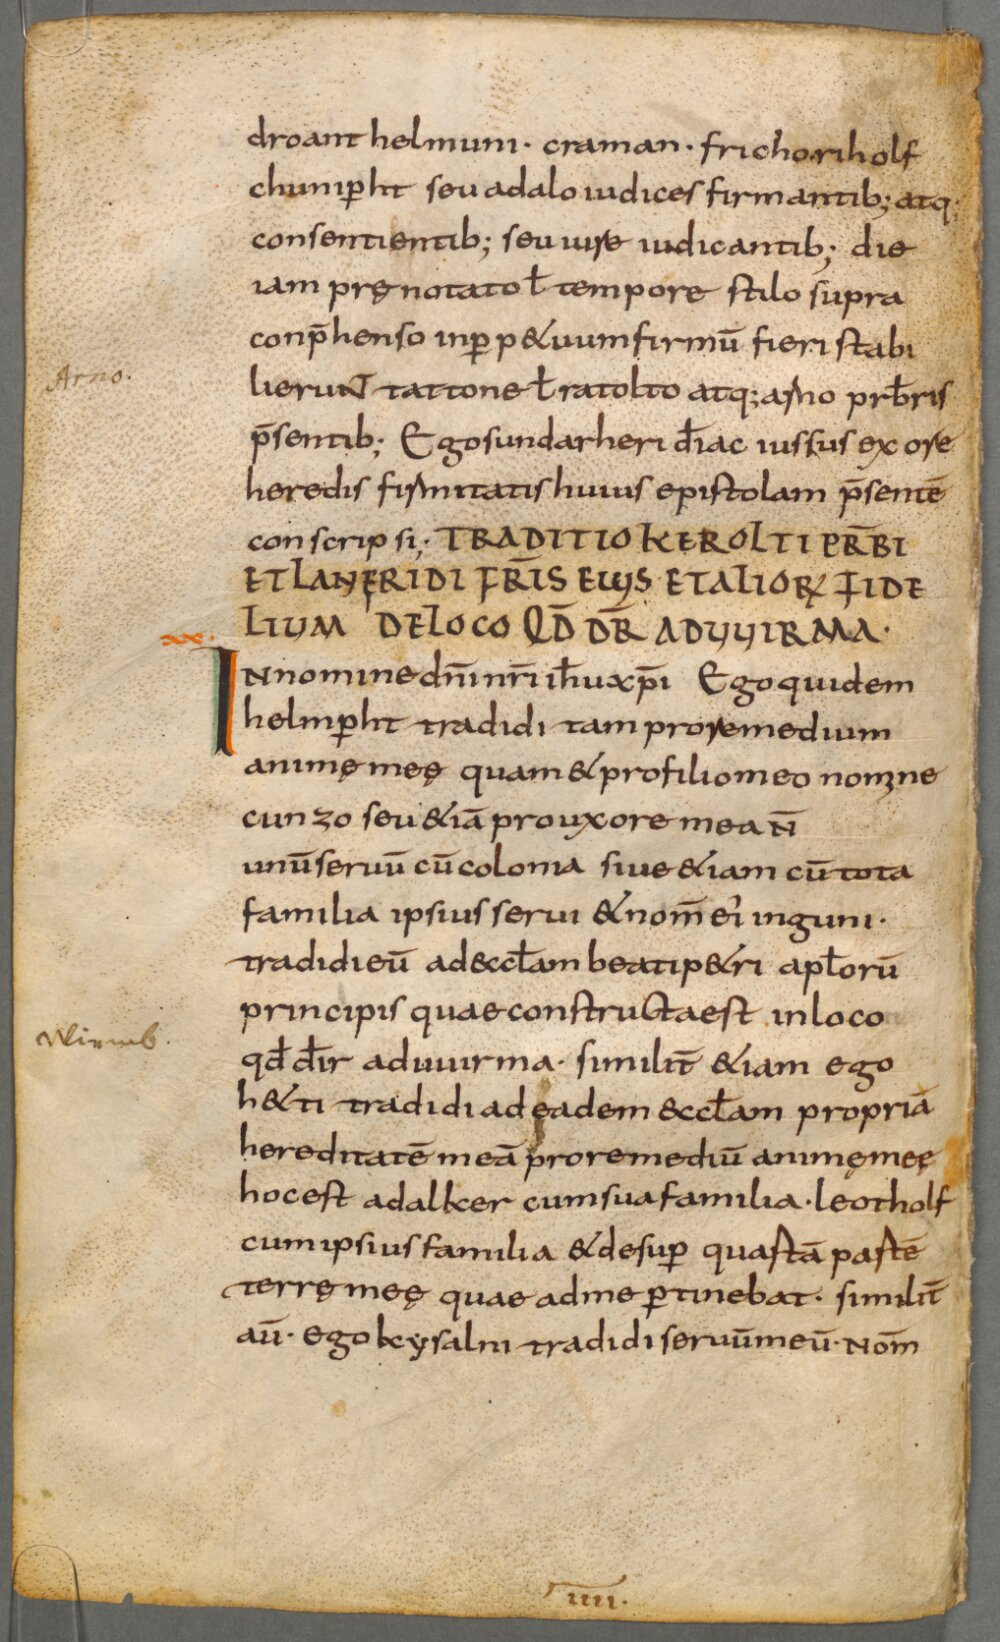 droant helmuni· craman· frichoriholf
chunip̄ht seu adalo iudices firmantib; atq;
consentientib; seu iuste iudicantib; die
iam prę notato ł tempore stilo supra
conp̄henso inp̱ p&uum firmū fieri stabi
lierunt tattone ł ratolto atq; arno
Arno.
prb̄ris
p̄sentib; Ego sundarheri d̄iac iussus ex ore
heredis firmitatis huius epistolam p̄sentē
conscripsi; TRADITIO KEROLTI PR̄BI
ET LANFRIDI FR̄IS EIUS ET ALIORꝜ FIDE
LIUM DE LOCO QD̄ DR̄ ADUUIRMA·
xx.
IN nomine dn̄i nr̄i ih̄u xp̄i Ego quidem
helmp̱ht tradidi tam pro remedium
animę męę quam & pro filio meo nomine
cunzo seu &iā pro uxore mea N̄
unū seruū cū colonia siue &iam cū tota
familia ipsius serui & nom̄ ei inguni·
tradidi eū ad eccl̄am beati p&ri apl̄orū
principis quae constructa est in loco
Wirmb.
qd̄ d̄ir aduuirma· similit̄ &iam ego
h&ti tradidi ad eadem eccl̄am propriā
hereditatē meā pro remediū animę męę
hoc est adalker cum sua familia· leotholf
cum ipsius familia & desup̱ quartā partē
terrę męę quae ad me p̱tinebat· similit̄
aū· ego kysalni tradidi seruū meū· nom̄
IIII.